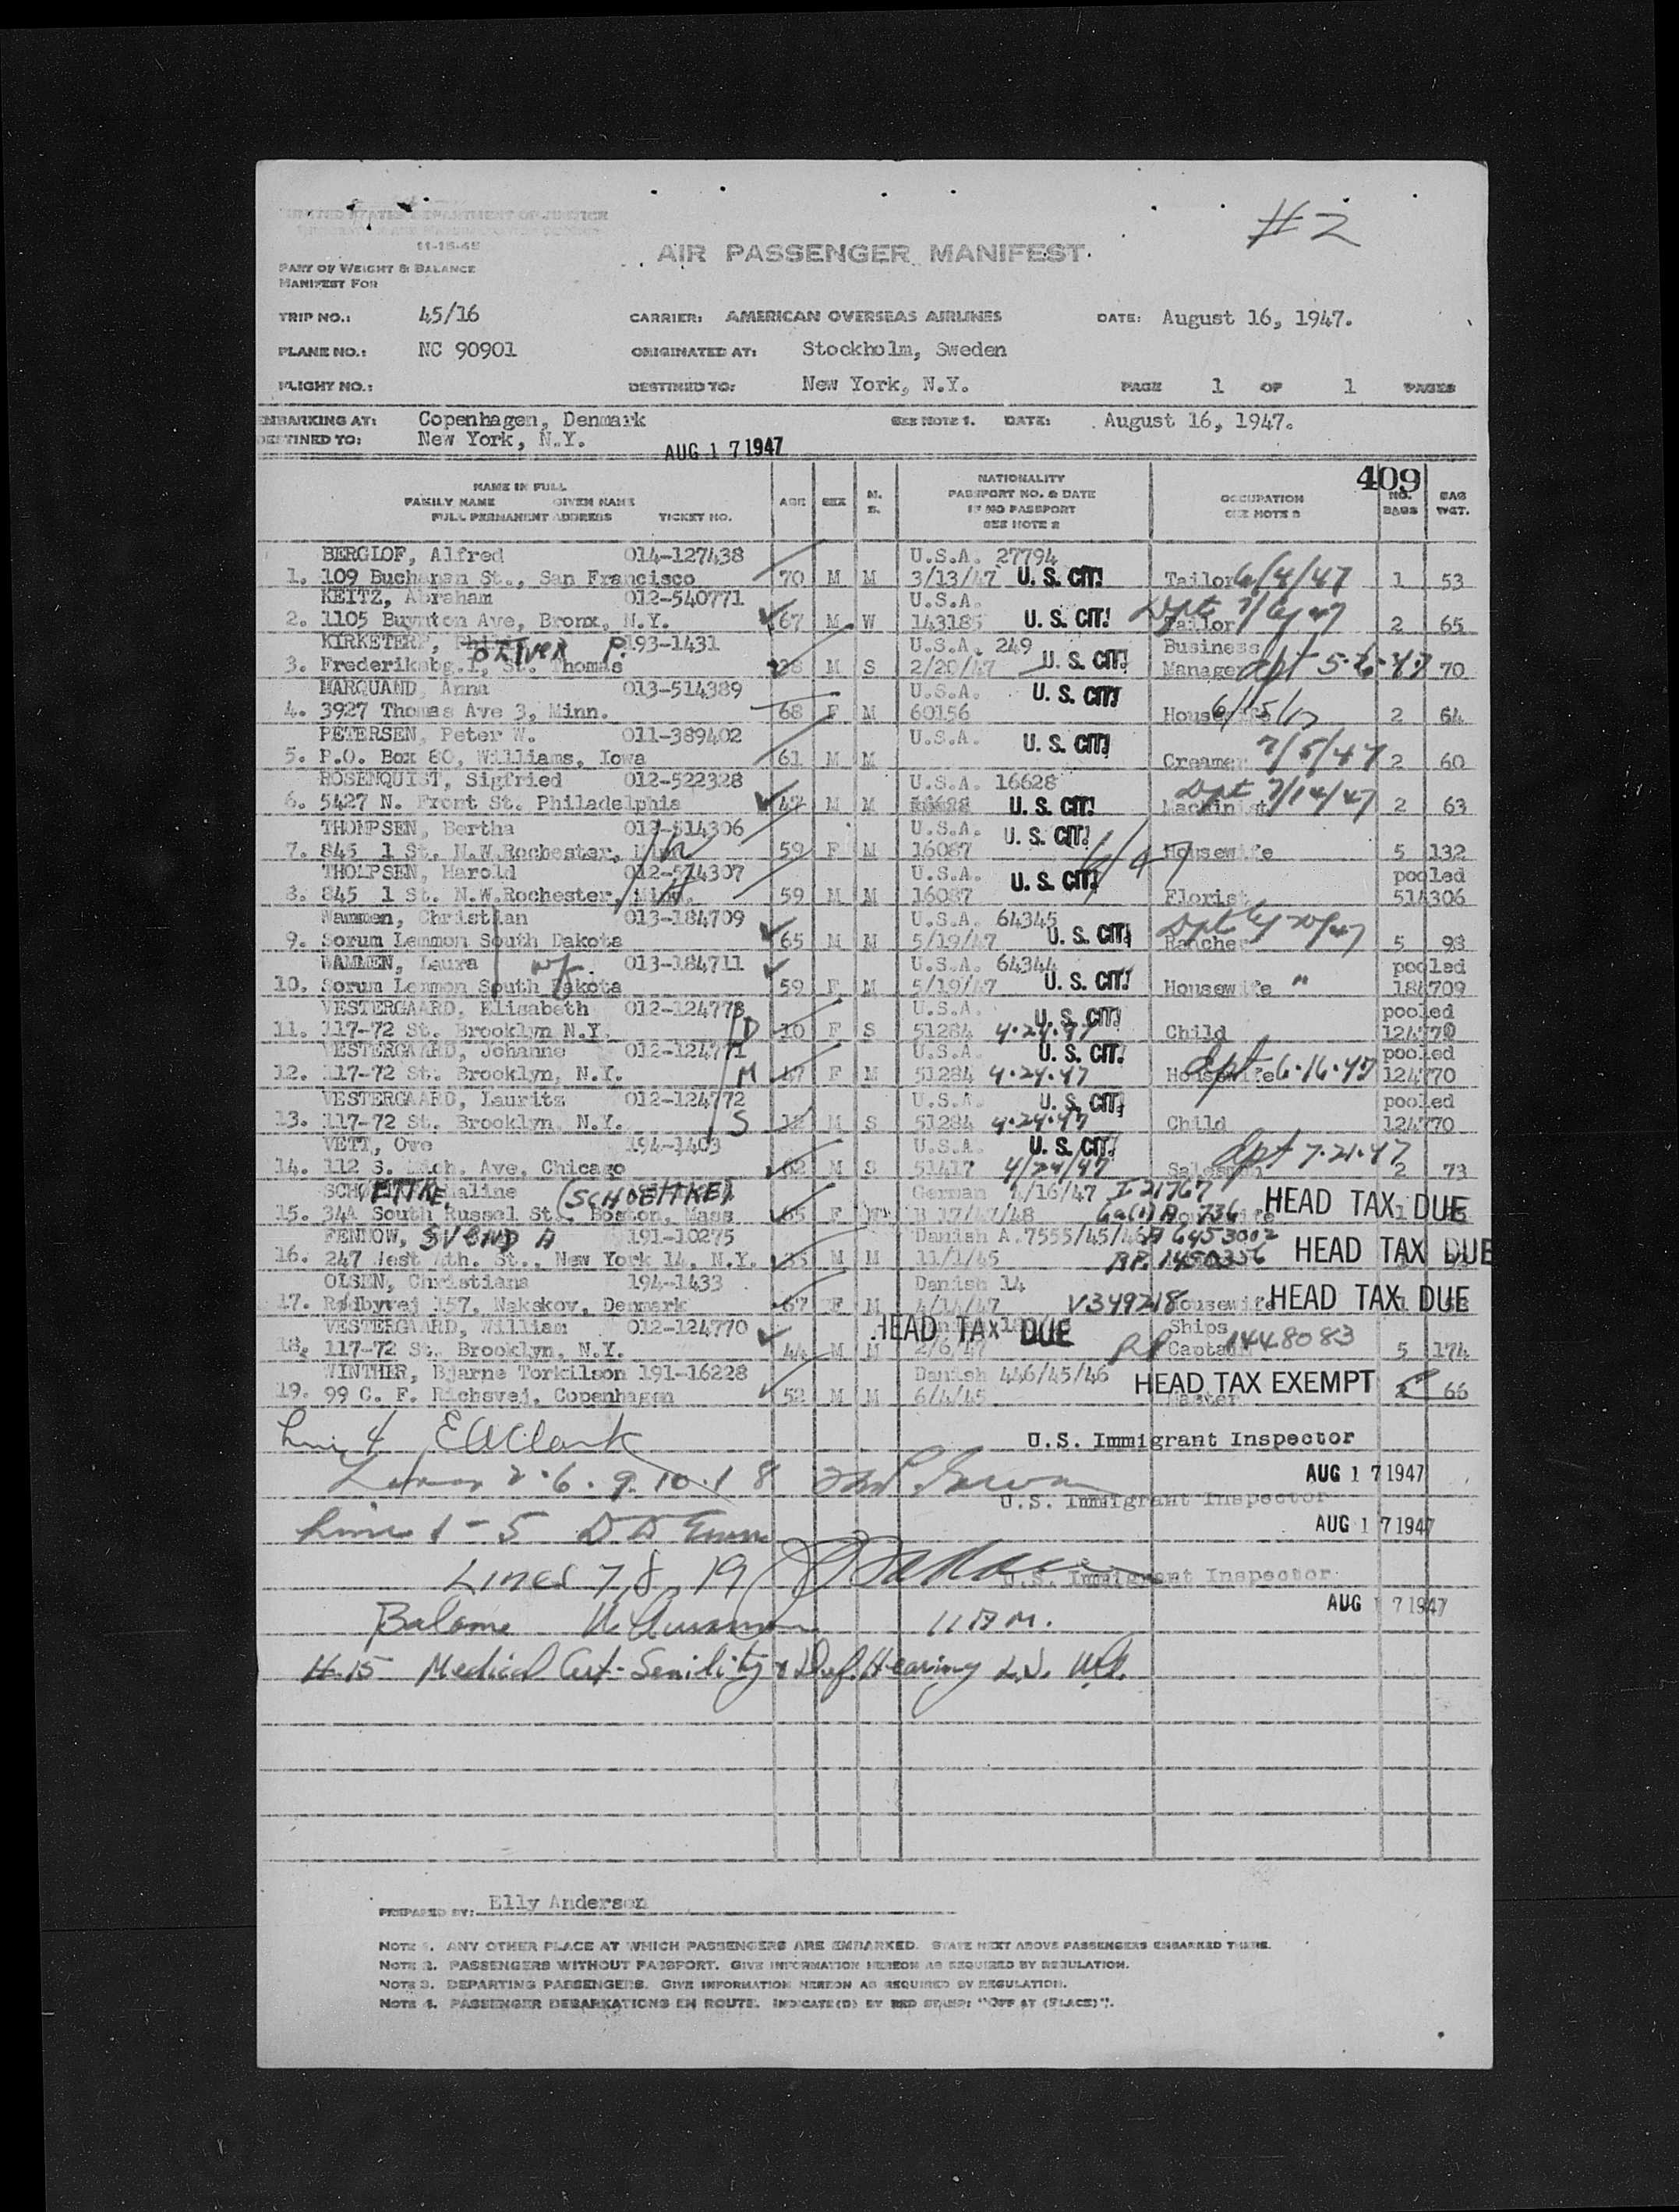 #2
UNITED STATES DEPARTMENT OF JUSTICE
11-15-45
AIR PASSENGER MANIFEST
PART OF WEIGHT & BALANCE
MANIFEST FOR
TRIP NO.: 45/16 CARRIER: AMERICAN OVERSEAS AIRLINES DATE: August 16, 1947.
PLANE NO.: NC 90901 ORIGINATED AT: Stockholm, Sweden
FLIGHT NO.: DESTINED TO: New York, N.Y. PAGE 1 OF 1 PAGES
EMBARKING AT: Copenhagen, Denmark SEE NOTE 1. DATE: August 16, 1947.
DESTINED TO: New York, N.Y.
AUG 17 1947
409
NAME IN FULL
FAMILY NAME GIVEN NAME
FULL PERMANENT ADDRESS TICKET NO. AGE SEX M. S. NATIONALITY PASSPORT NO. & DATE IF NO PASSPORT SEE NOTE 2 OCCUPATION SEE NOTE 3 NO. BAGS BAG WGT.
BERGLOF, Alfred 014-127438 U.S.A. 27794
1. 109 Buchanan St., San Francisco 70 M M 3/13/47 U. S. CIT! Tailor 6/4/47 1 53
KEITZ, Abraham 012-540771 U.S.A.
2. 1105 Buynton Ave, Bronx, N.Y. 67 M W 143185 U. S. CIT! Tailor Dpt 7/6/47 2 65
KIRKETERP, OLIVER P. 193-1431 U.S.A. 249 Business
3. Frederiksbg.1, St. Thomas M S 2/20/47 U. S. CIT! Manager dpt 5-6-47 70
MARQUAND, Anna 013-514389 U.S.A. U. S. CIT!
4. 3927 Thomas Ave 3, Minn. 68 F M 60156 Housewife 2 64
PETERSEN, Peter W. 011-389402 U.S.A. U. S. CIT!
5. P.O. Box 80, Williams, Iowa 61 M M Creamer 7/5/47 2 60
ROSENQUIST, Sigfried 012-522328 U.S.A. 16628
6. 5427 N. Front St. Philadelphia 47 M M U. S. CIT! Machinist Dpt 7/14/47 2 63
THOMPSEN, Bertha 012-514306 U.S.A. U. S. CIT!
7. 845 1 St. N.W.Rochester, Minn 59 F M 16087 Housewife 5 132
THOMPSEN, Harold 012-514307 U.S.A. U. S. CIT! pooled
8. 845 1 St. N.W.Rochester, Minn. 59 M M 16087 Florist 514306
Wammen, Christian 013-184709 U.S.A. 64345
9. Sorum Lemmon South Dakota 65 M M 5/19/47 U. S. CIT! Rancher 5 93
WAMMEN, Laura wf. 013-184711 U.S.A. 64344 pooled
10. Sorum Lemmon South Dakota 59 F M 5/19/47 U. S. CIT! Housewife " 184709
VESTERGAARD, Elisabeth 012-124773 U.S.A. U. S. CIT! pooled
11. 117-72 St. Brooklyn N.Y. D 10 F S 51284 4-24-47 Child 124770
VESTERGAARD, Johanne 012-124771 U.S.A. U. S. CIT. pooled
12. 117-72 St. Brooklyn, N.Y. M 47 F M 51284 4-24-47 Housewife dpt 6-16-47 124770
VESTERGAARD, Lauritz 012-124772 U.S.A. U. S. CIT! pooled
13. 117-72 St. Brooklyn, N.Y. S 12 M S 51284 4-24-47 Child 124770
VETT, Ove 194-1403 U.S.A. U. S. CIT!
14. 112 S. Mich. Ave, Chicago 62 M S 51417 4/24/47 Salesman dpt 7-21-47 2 73
SCHOETTKE (SCHOETTKE) German 4/16/47 I 21767
15. 344 South Russel St. Boston, Mass 65 F HEAD TAX DUE
FENNOW, SVEND A 191-10275 Danish A.7555/45/46 A 6453002
16. 247 West 4th. St., New York 14, N.Y. 35 M M 11/1/45 RP. 1450356 HEAD TAX DUE
OLSEN, Christiana 194-1433 Danish 14
17. Rødbyvej 157, Nakskov, Denmark 67 F M 4/14/47 V349218 Housewife HEAD TAX DUE
VESTERGAARD, William 012-124770 HEAD TAX DUE Ships
18. 117-72 St. Brooklyn, N.Y. 44 M M 2/6/47 RP Captain 1448083 5 174
WINTHER, Bjarne Torkilson 191-16228 Danish 446/45/46
19. 99 C. F. Richsvej, Copenhagen 52 M M 6/4/45 HEAD TAX EXEMPT Master 66
Line 4 E A Clark U.S. Immigrant Inspector
AUG 17 1947
2-6-9-10-18
U.S. Immigrant Inspector
AUG 17 1947
Line 1-5
LINES 7, 8, 19
U.S. Immigrant Inspector
AUG 17 1947
Balance 11 AM.
#15 Medical Cert- Senility & Def. Hearing
PREPARED BY: Elly Anderson
NOTE 1. ANY OTHER PLACE AT WHICH PASSENGERS ARE EMBARKED. STATE NEXT ABOVE PASSENGERS EMBARKED THERE.
NOTE 2. PASSENGERS WITHOUT PASSPORT. GIVE INFORMATION HEREON AS REQUIRED BY REGULATION.
NOTE 3. DEPARTING PASSENGERS. GIVE INFORMATION HEREON AS REQUIRED BY REGULATION.
NOTE 4. PASSENGER DEBARKATIONS EN ROUTE. INDICATE(D) BY RED STAMP: "OFF AT (PLACE)".